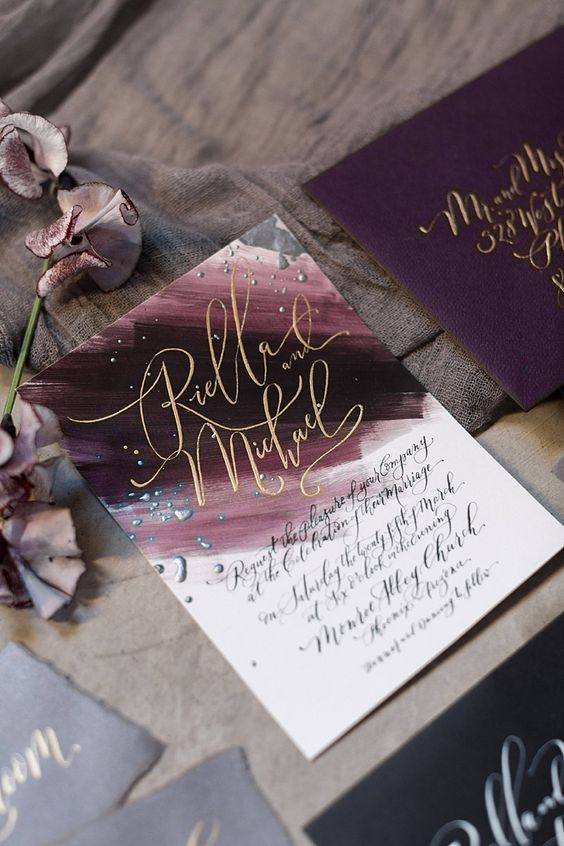 Riella
and
Michael
Request the pleasure of your Company
at the Celebration of their Marriage
on Saturday the twenty fifth of March
at Six o'clock in the evening
Monroe Abbey Church
Phoenix Arizona
Dinner and Dancing to follow
Mr and
328 West
oom